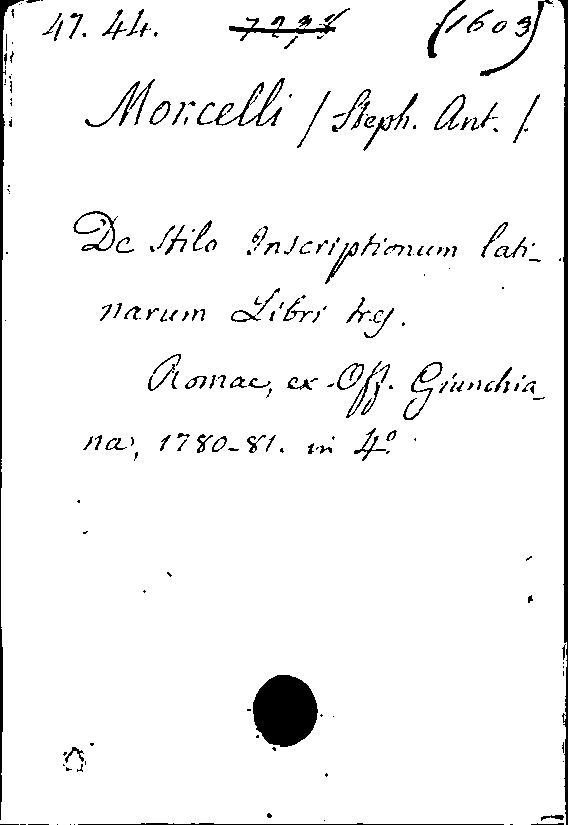 47. 44. (1603)
Morcelli / Steph. Ant. /.
De stilo Inscriptionum lati-
narum Libri tres.
Romae, ex Off. Giunchia-
na, 1780-81. in 4º.